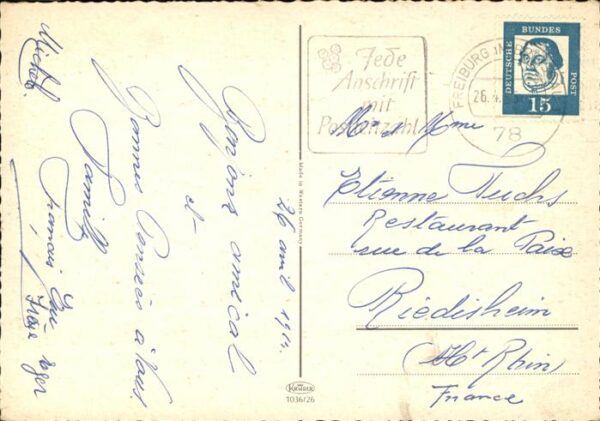 26 avril
Bonjour amical
et
Bonnes Pensées à tous
Famille
Michel
François
Jede
Anschrift
mit
Postleitzahl
FREIBURG IM
26.4.
78
DEUTSCHE BUNDES POST
15
Mr et Mme
Etienne Fuchs
Restaurant
rue de la Paix
Riedisheim
(Ht Rhin)
France
Made in Western Germany
KRÜGER
1036/26